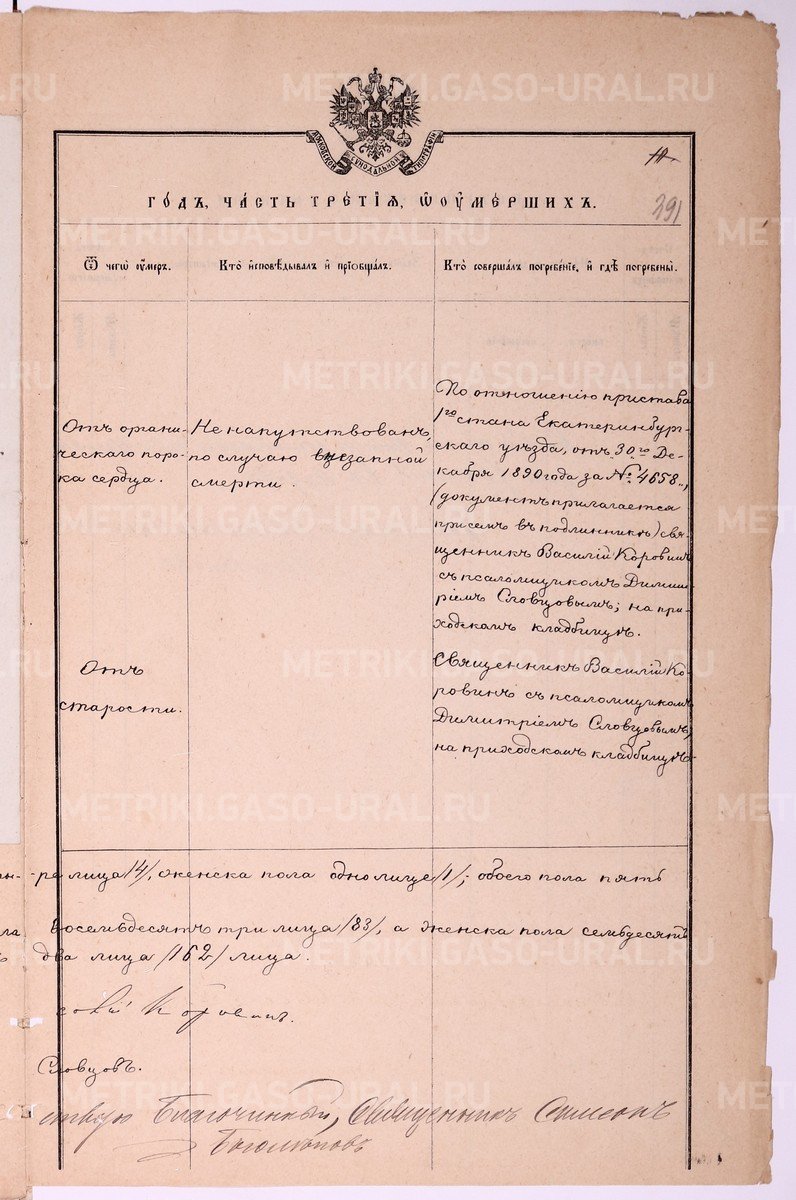 МОСКОВСКОЙ СѴНОДАЛЬНОЙ ТИПОГРАФІИ
291
ГОДЪ, ЧАСТЬ ТРЕТІЯ, Ѡ ОУМЕРШИХЪ.
Ѿ чегѡ оумеръ.
Кто исповѣдывалъ и пріобщалъ.
Кто совершалъ погребеніе, и гдѣ погребены.
Отъ органи-
ческаго поро-
ка сердца.
Не напутствованъ,
по случаю внезапной
смерти.
По отношенію пристава
1го стана Екатеринбург-
скаго уѣзда, отъ 30го Де-
кабря 1890 года за №. 4658.,
(документъ прилагается
при семъ въ подлинникѣ) свя-
щенникъ Василій Коровинъ
съ псаломщикомъ Димит-
ріемъ Словцовымъ; на при-
ходскомъ кладбищѣ.
Отъ
старости.
Священникъ Василій Ко-
ровинъ съ псаломщикомъ
Димитріемъ Словцовымъ;
на приходскомъ кладбищѣ.
ре лица /4/, женска пола одно лице /1/; обоего пола пять
восемьдесятъ три лица /83/, а женска пола семьдесятъ
два лица /162/ лица.
Коровинъ.
Словцовъ.
Благочинный, Священникъ Симеонъ
METRIKI.GASO-URAL.RU